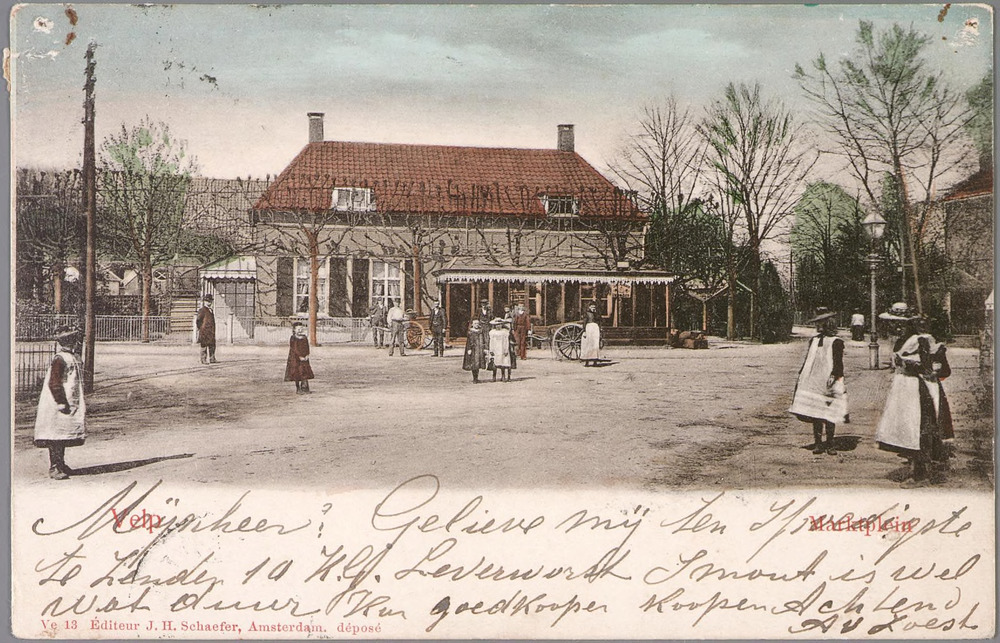 Velp
Marktplein
Mijnheer? Gelieve mij ten Spoedigste
te Zenden 10 Kg. Leverworst Smout is wel
wat duur Kan goedkooper koopen Achtend
Av Zoest
Ve 13 Éditeur J. H. Schaefer, Amsterdam. déposé